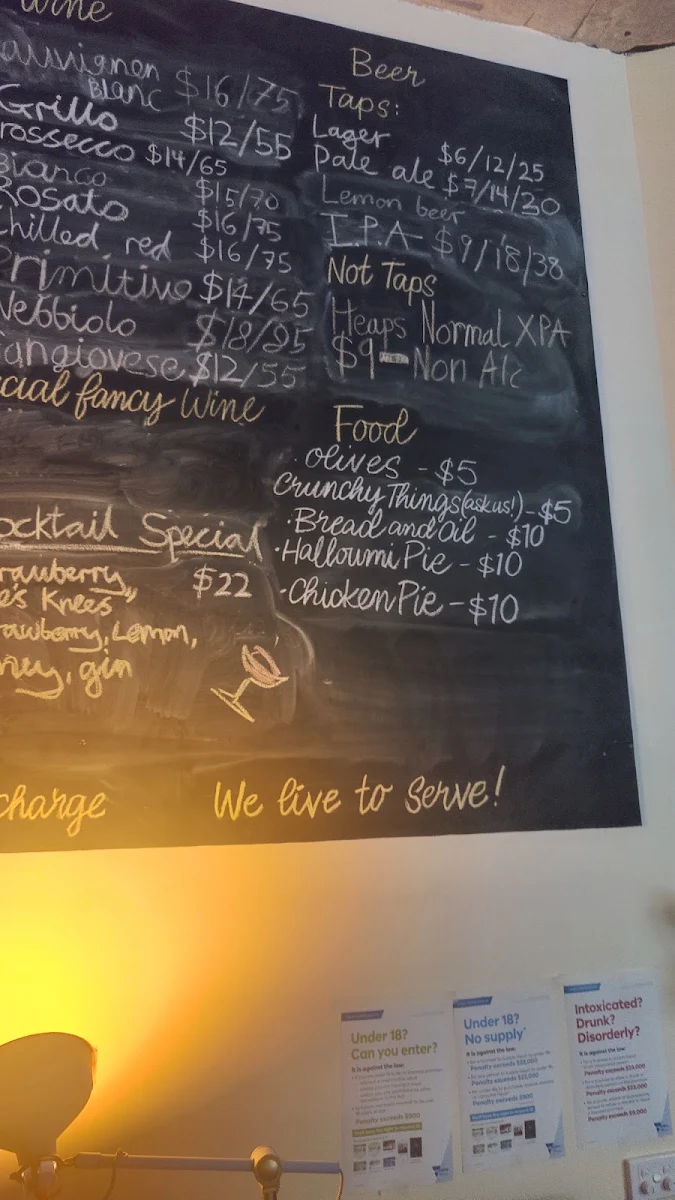 Wine
auvignen
Blanc $16/75
Grillo $12/55
rossecco $14/65
Bianco $15/70
Rosato $16/75
hilled red $16/75
Primitivo $14/65
Nebbiolo $18/85
angiovese $12/55
cial fancy Wine
ocktail Special
rawberry, $22
e's Knees
rawberry, Lemon,
ney, gin
charge
Beer
Taps:
Lager $6/12/25
Pale ale $7/14/30
Lemon beer
I.P.A $9/18/38
Not Taps
Heaps Normal XPA
$9 - Non Alc
Food
· olives - $5
Crunchy Things (ask us!) - $5
· Bread and oil - $10
· Halloumi Pie - $10
· Chicken Pie - $10
We live to serve!
Under 18?
Can you enter?
It is against the law:
Penalty exceeds $900
Under 18?
No supply*
It is against the law:
Intoxicated?
Drunk?
Disorderly?
It is against the law: